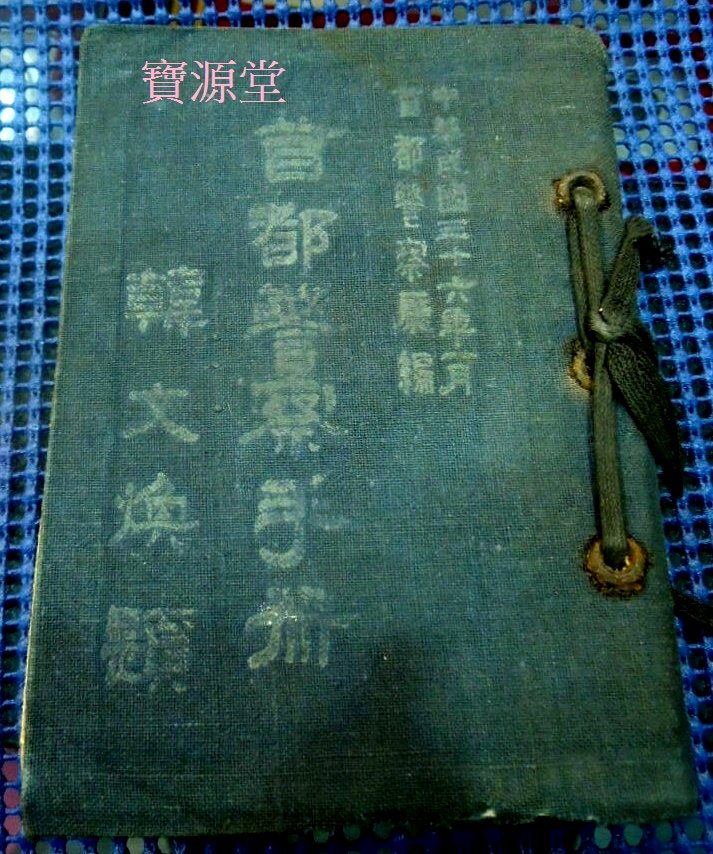 寶源堂
中華民國三十六年一月
首都警察廳編
首都警察手册
韓文煥題